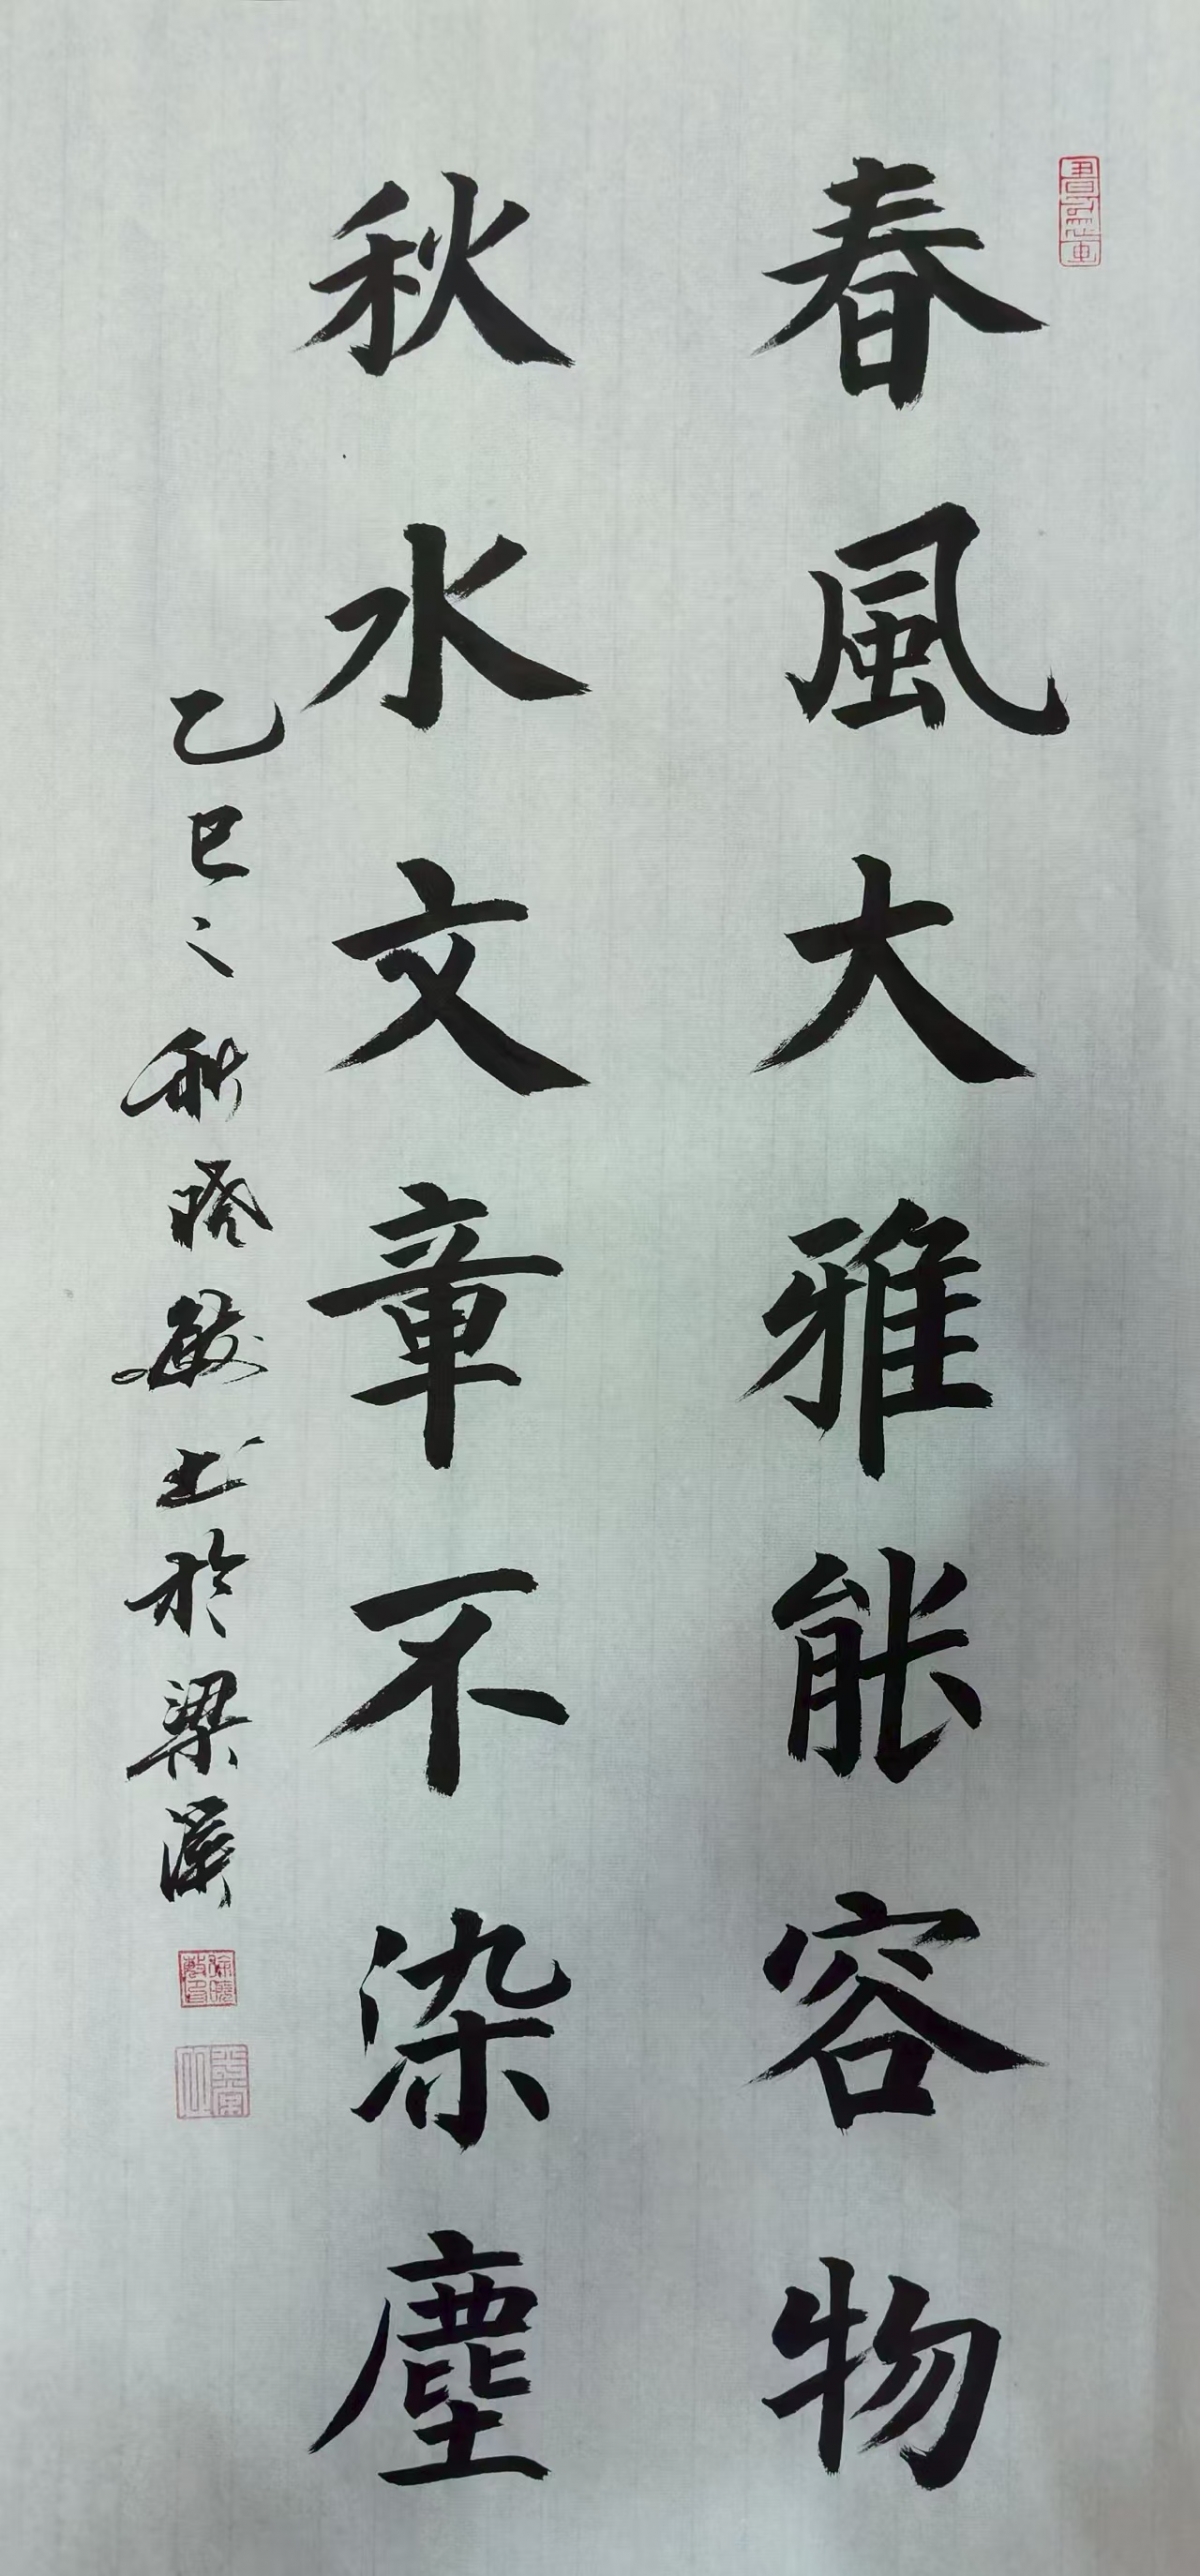 春風大雅能容物
秋水文章不染塵
乙巳之秋曉敏书於梁溪